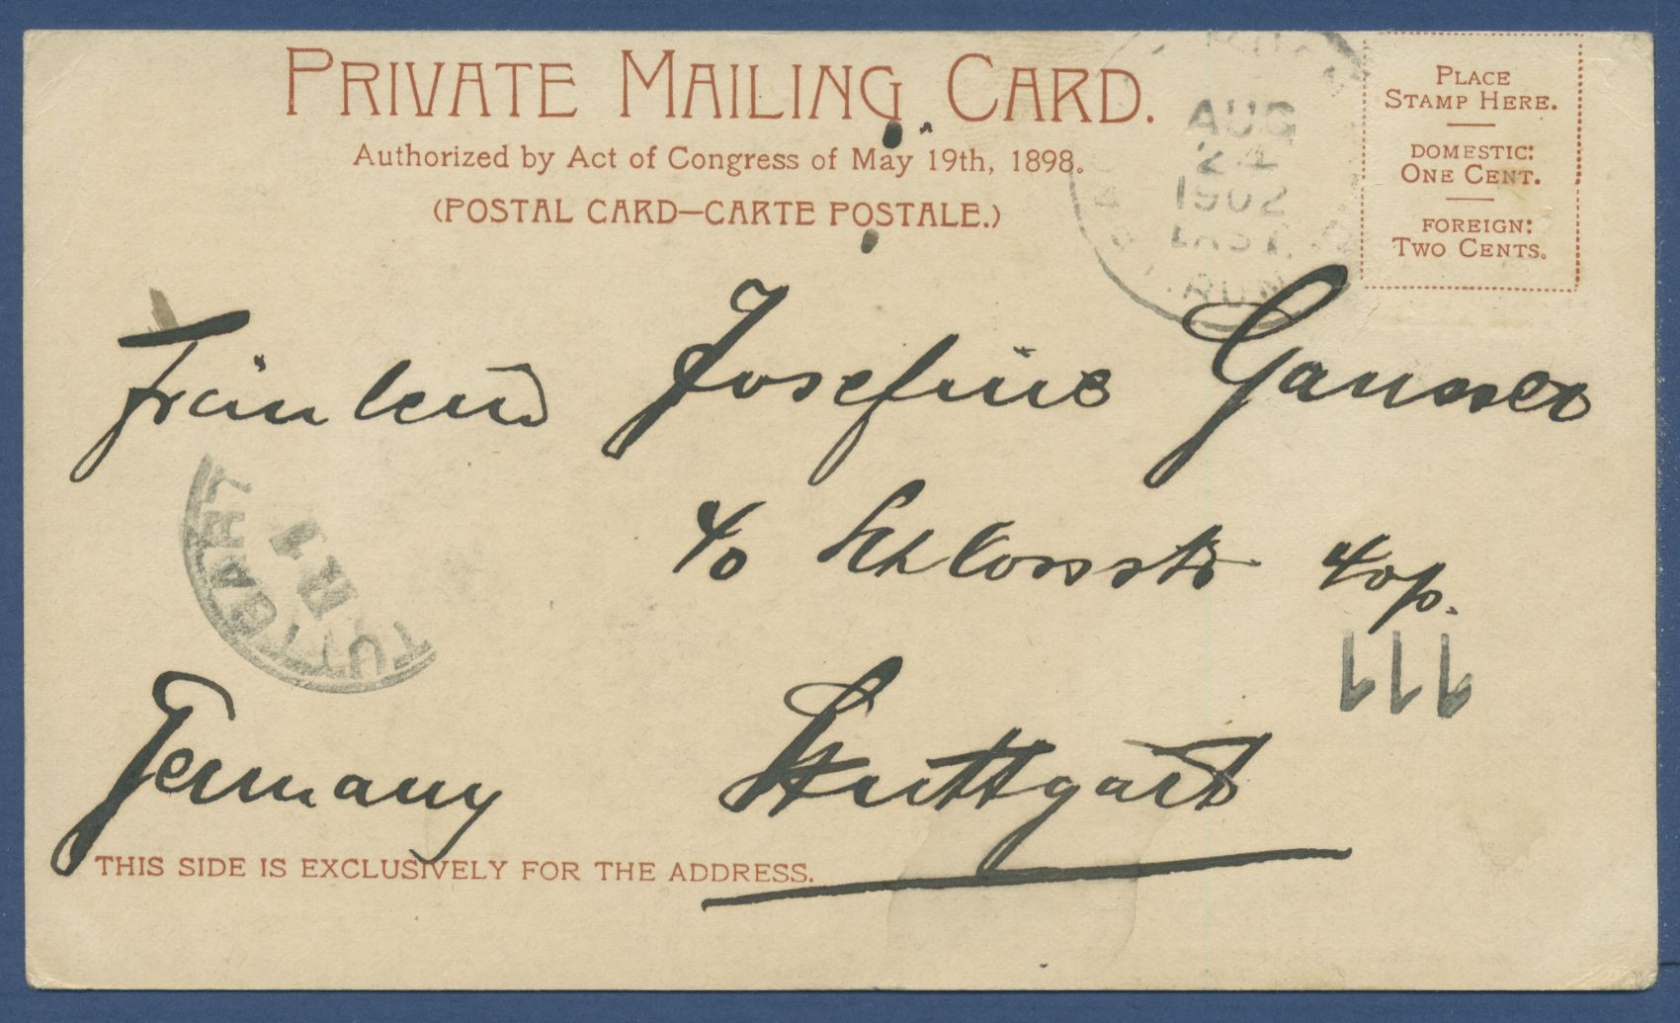 PRIVATE MAILING CARD.
Authorized by Act of Congress of May 19th, 1898.
(POSTAL CARD—CARTE POSTALE.)
PLACE
STAMP HERE.
DOMESTIC:
ONE CENT.
FOREIGN:
TWO CENTS.
AUG
24
1902
Fräulein Josefine Gausser
c/o Schlossstr 40p.
STUTTGART
111
Germany Stuttgart
THIS SIDE IS EXCLUSIVELY FOR THE ADDRESS.